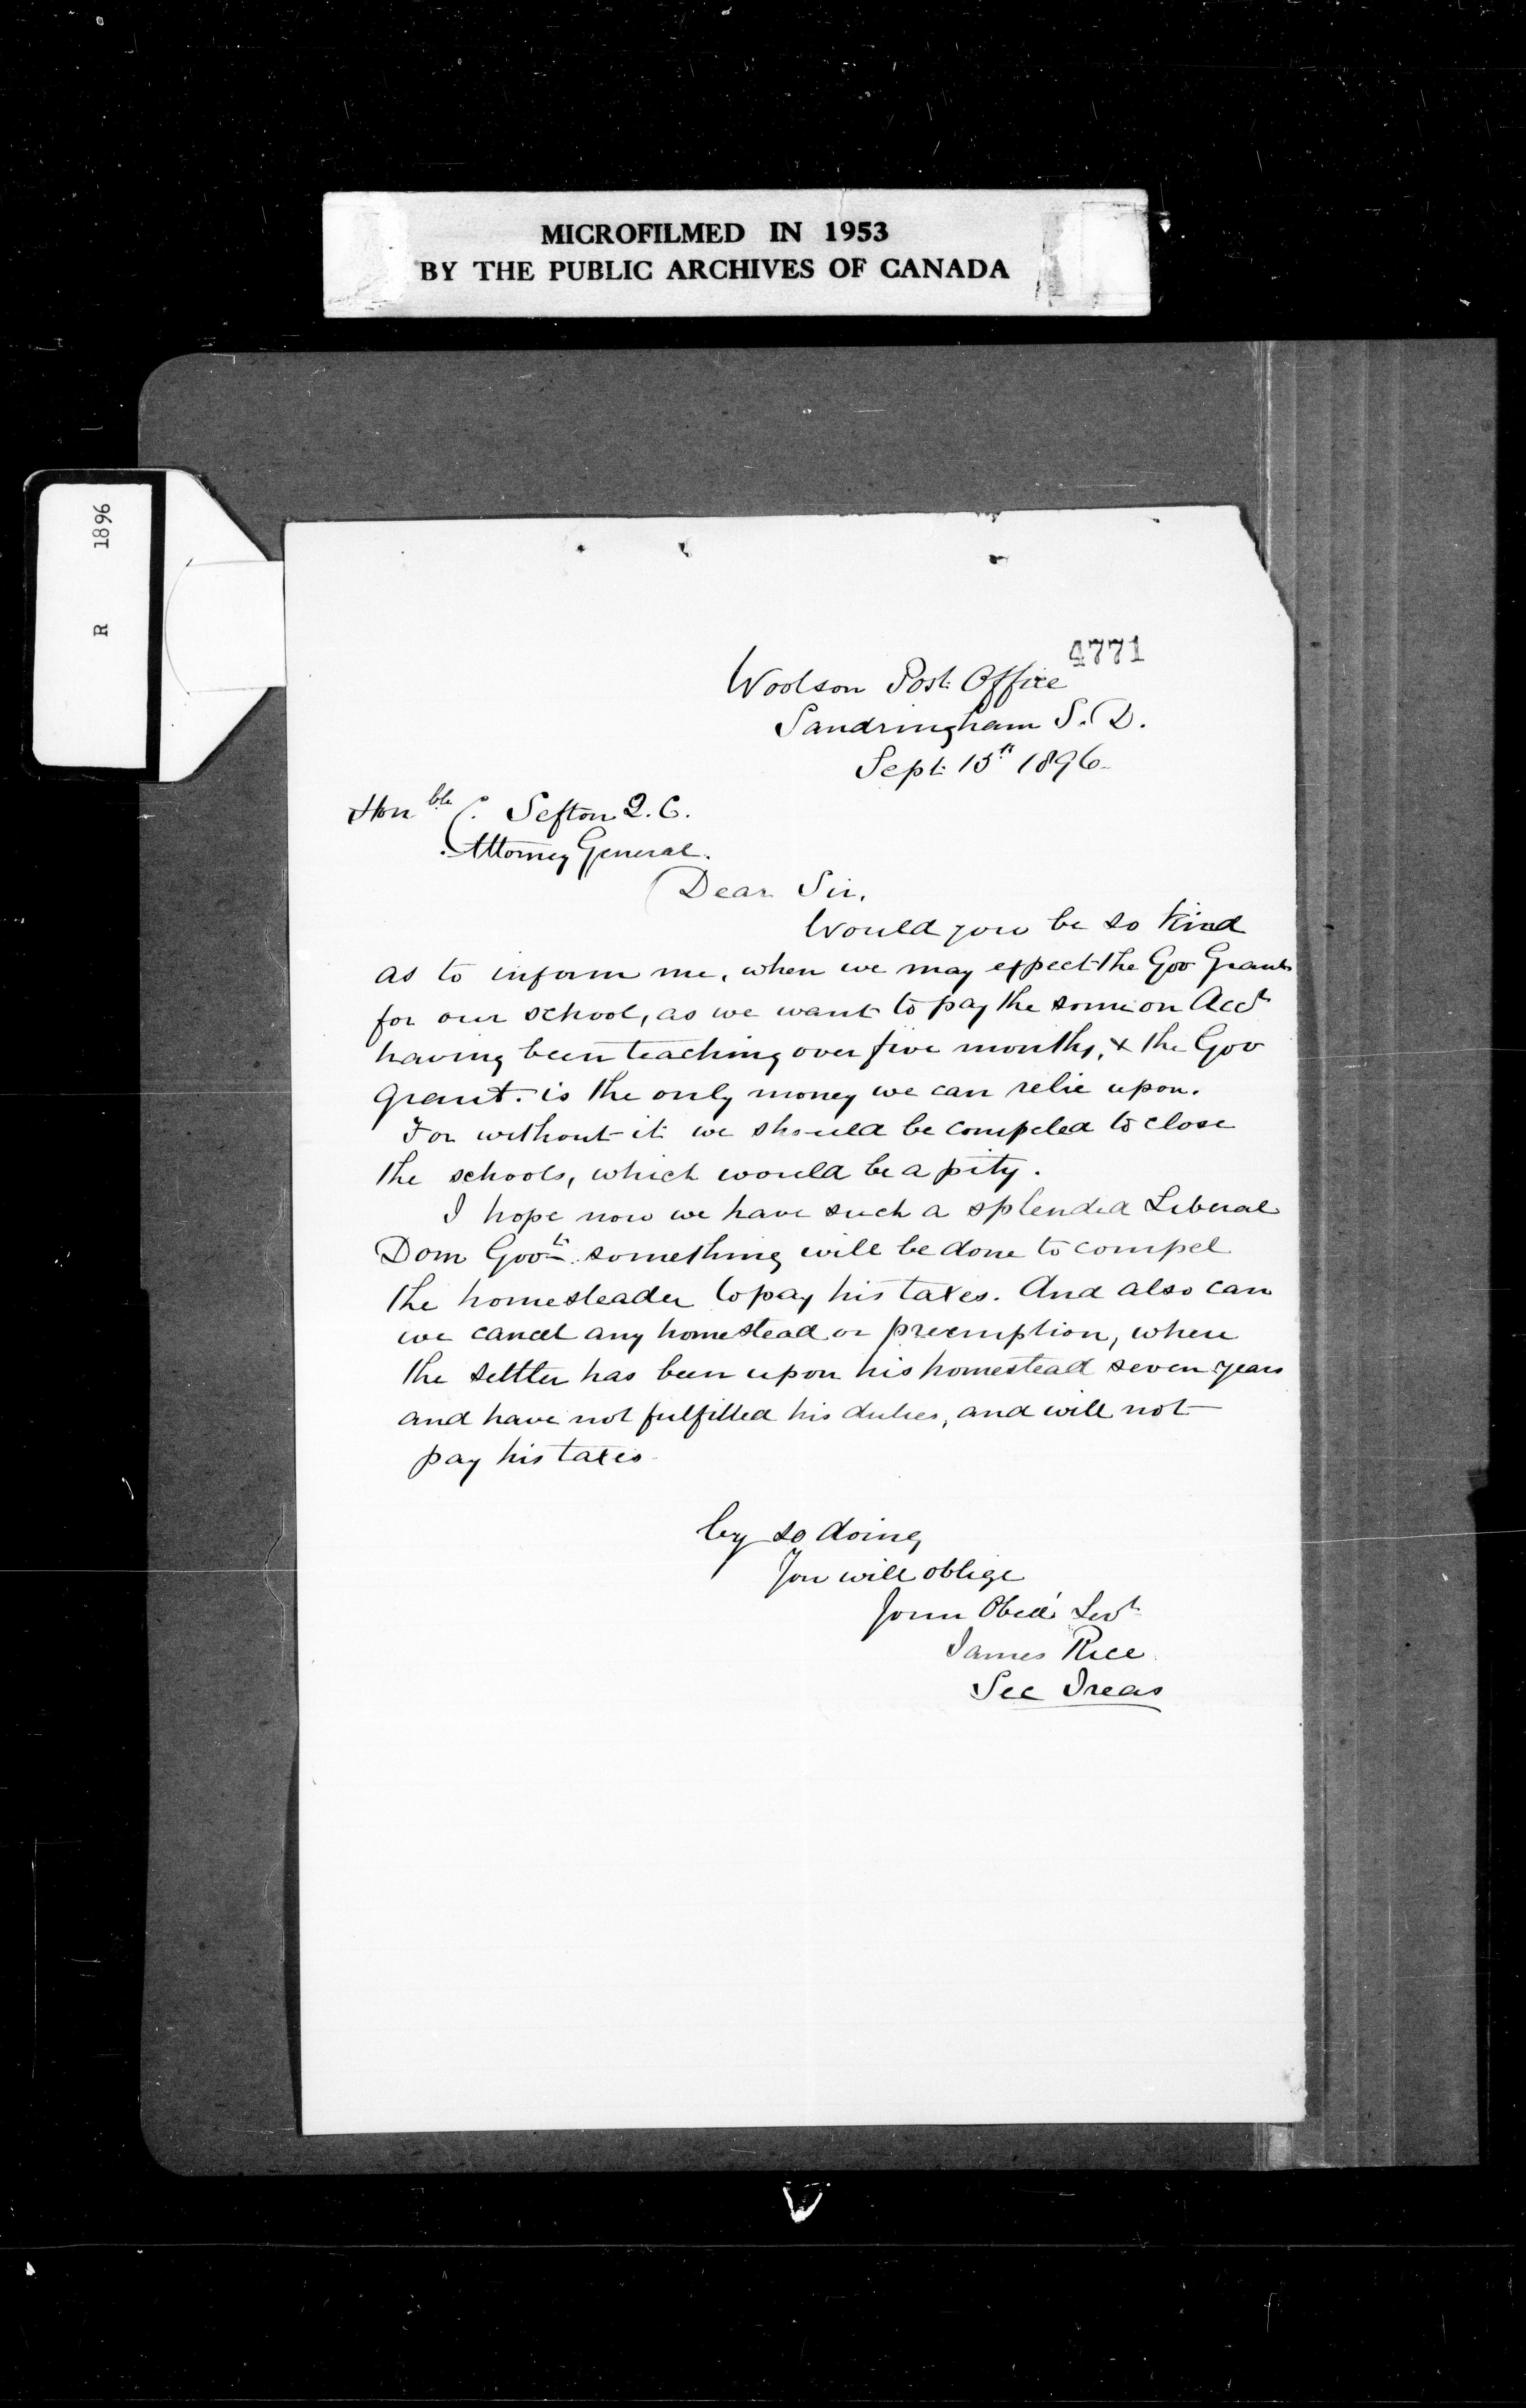 MICROFILMED IN 1953
BY THE PUBLIC ARCHIVES OF CANADA
R 1896
4771
Woolson Post Office
Sandringham S. D.
Sept. 15th 1896
Honble C. Sefton Q. C.
Attorney General.
Dear Sir,
Would you be so kind
as to inform me, when we may expect the Gov Grant
for our school, as we want to pay the some on Acct
having been teaching over five months, & the Gov
grant. is the only money we can relie upon.
For without it we should be compeled to close
the schools, which would be a pity.
I hope now we have such a splendid Liberal
Dom Govt. something will be done to compel
the homesteader to pay his taxes. And also can
we cancel any homestead or preemption, where
the settler has been upon his homestead seven years
and have not fulfilled his duties, and will not
pay his taxes
by so doing
You will oblige
Your Obed Servt
James Rice
Sec Treas